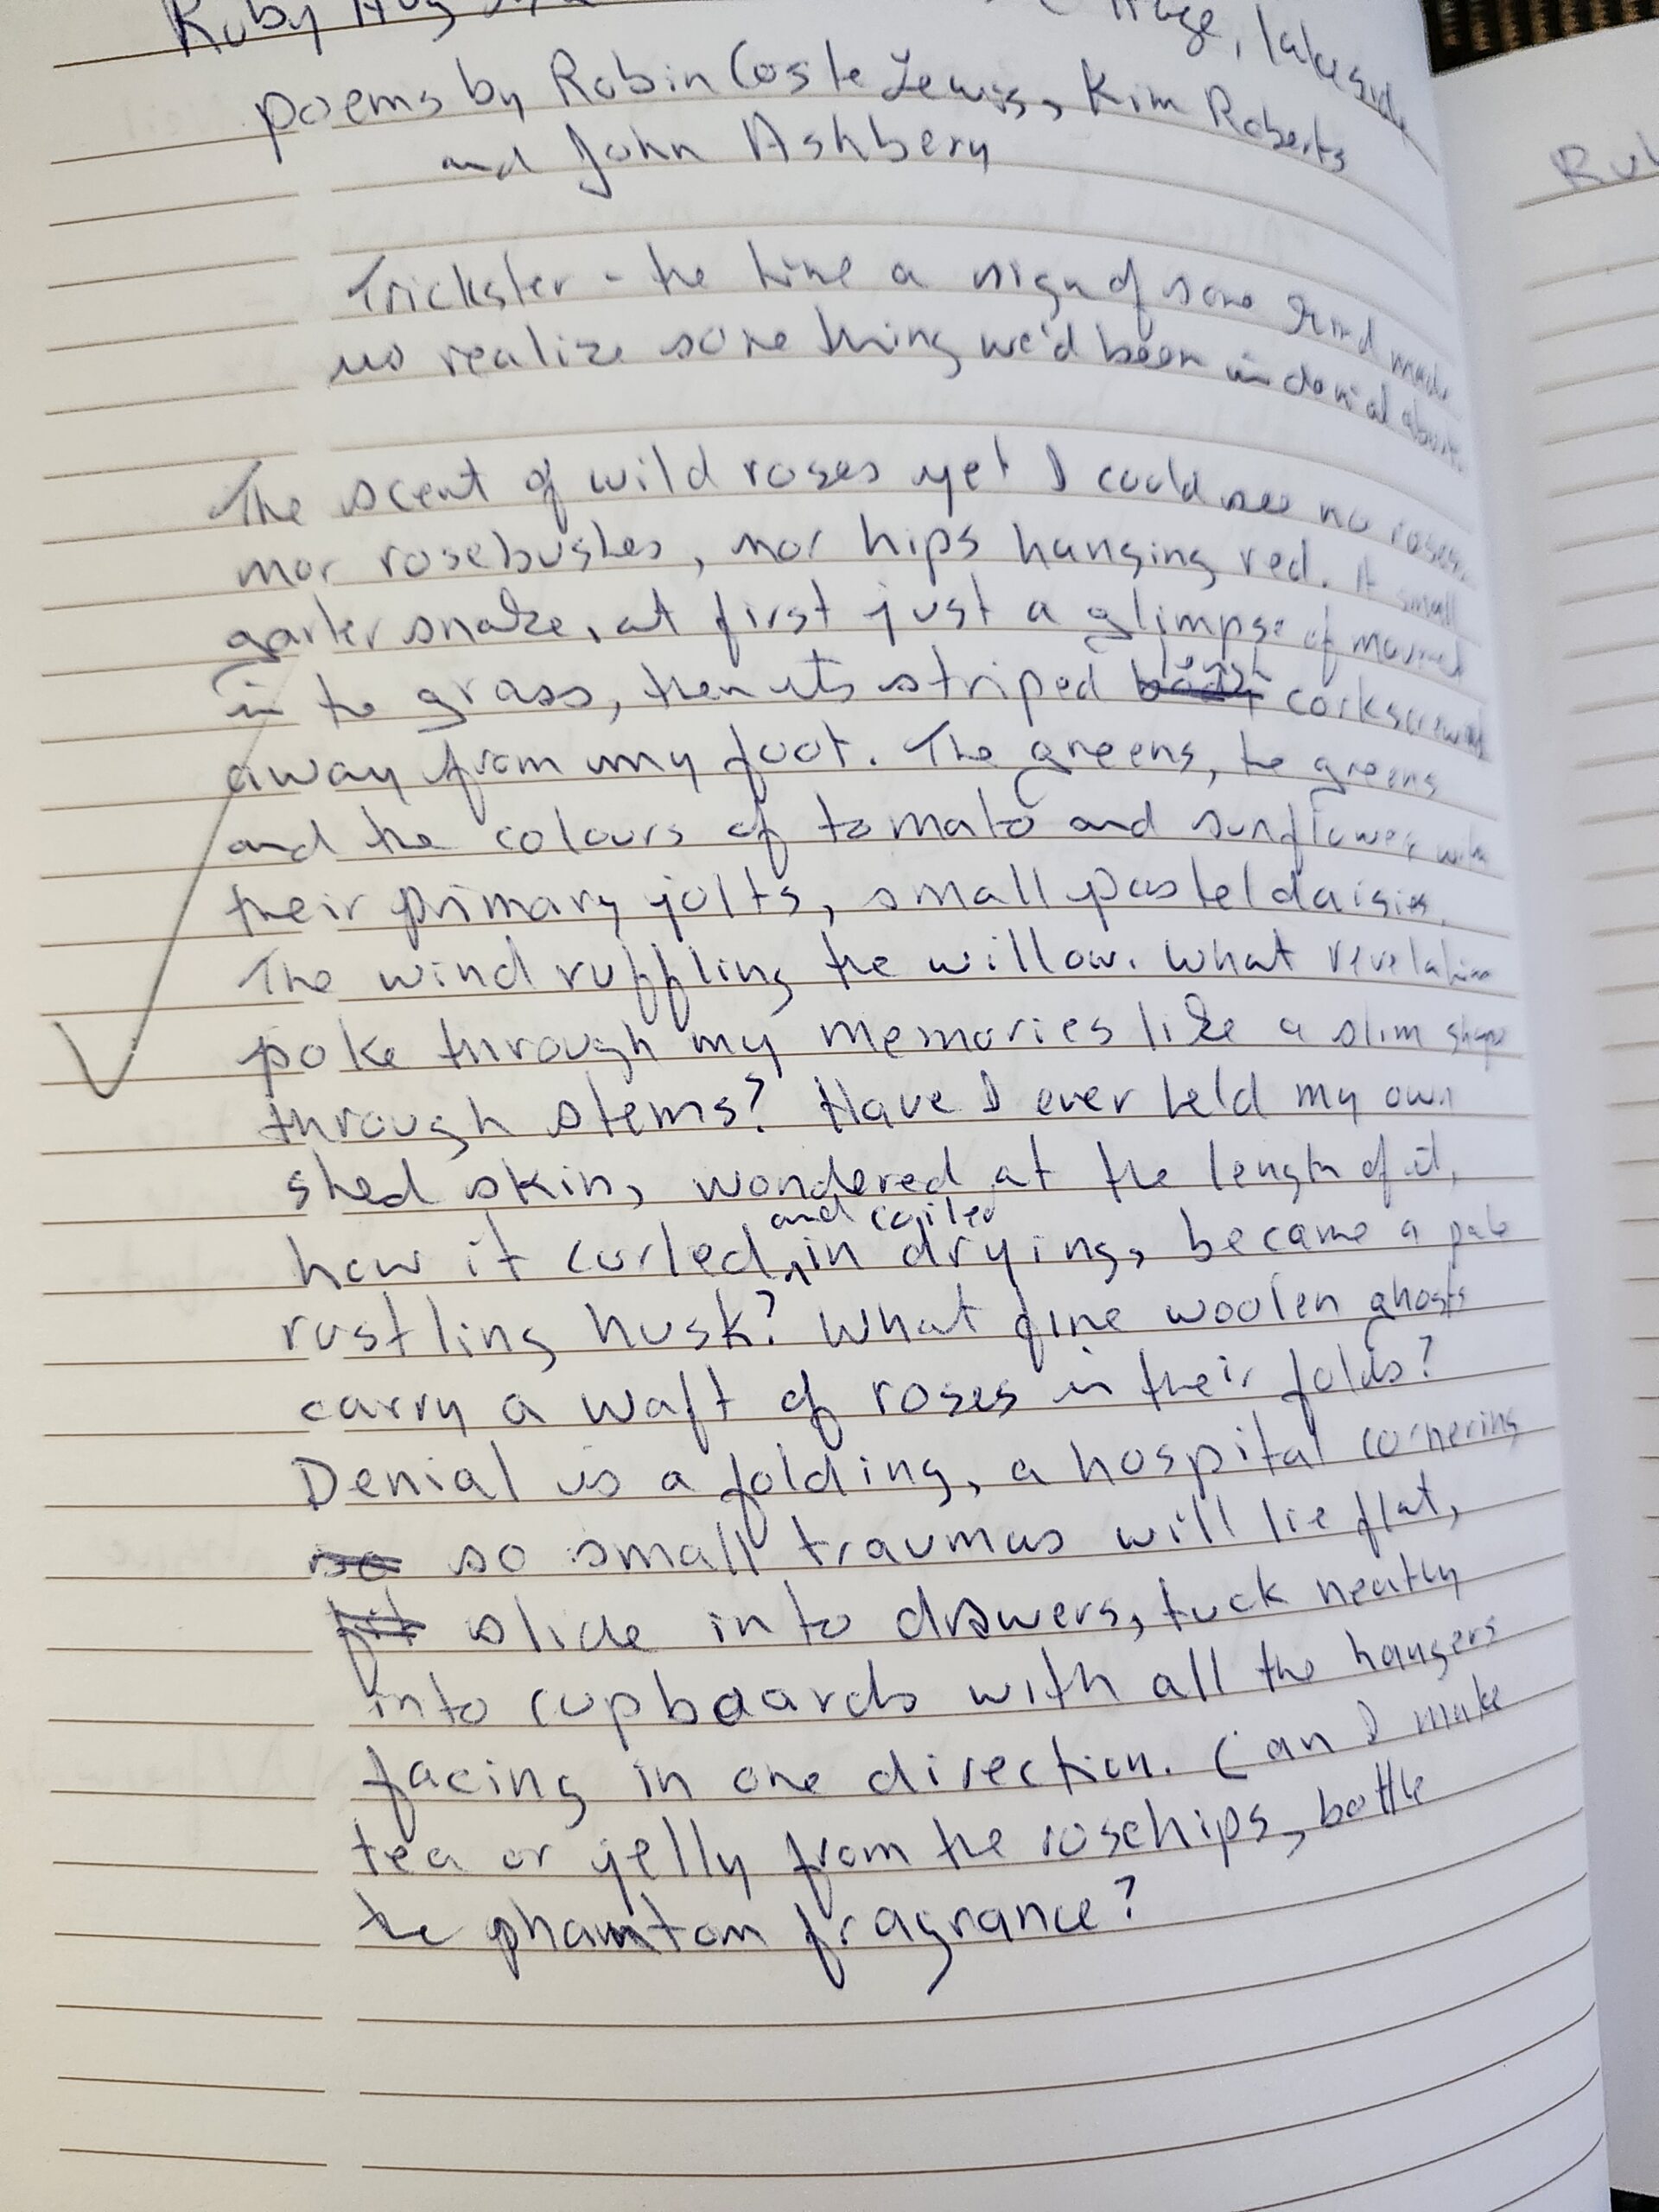 Ruby Aug
lakeside
poems by Robin Coste Lewis, Kim Roberts
and John Ashbery
Trickster - the time a sign of some kind made
us realize something we'd been in denial about.
The scent of wild roses yet I could see no roses,
nor rosebushes, nor hips hanging red. A small
garter snake, at first just a glimpse of movement
in the grass, then its striped length corkscrewed
away from my foot. The greens, the greens
and the colours of tomato and sunflower with
their primary jolts, small pastel daisies.
The wind ruffling the willow. What revelations
poke through my memories like a slim shape
through stems? Have I ever held my own
shed skin, wondered at the length of it,
how it curled and coiled in drying, became a pale
rustling husk? What fine woolen ghosts
carry a waft of roses in their folds?
Denial is a folding, a hospital cornering
so so small traumas will lie flat,
fit slide into drawers, tuck neatly
into cupboards with all the hangers
facing in one direction. Can I make
tea or jelly from the rosehips, bottle
the phantom fragrance?
Rub